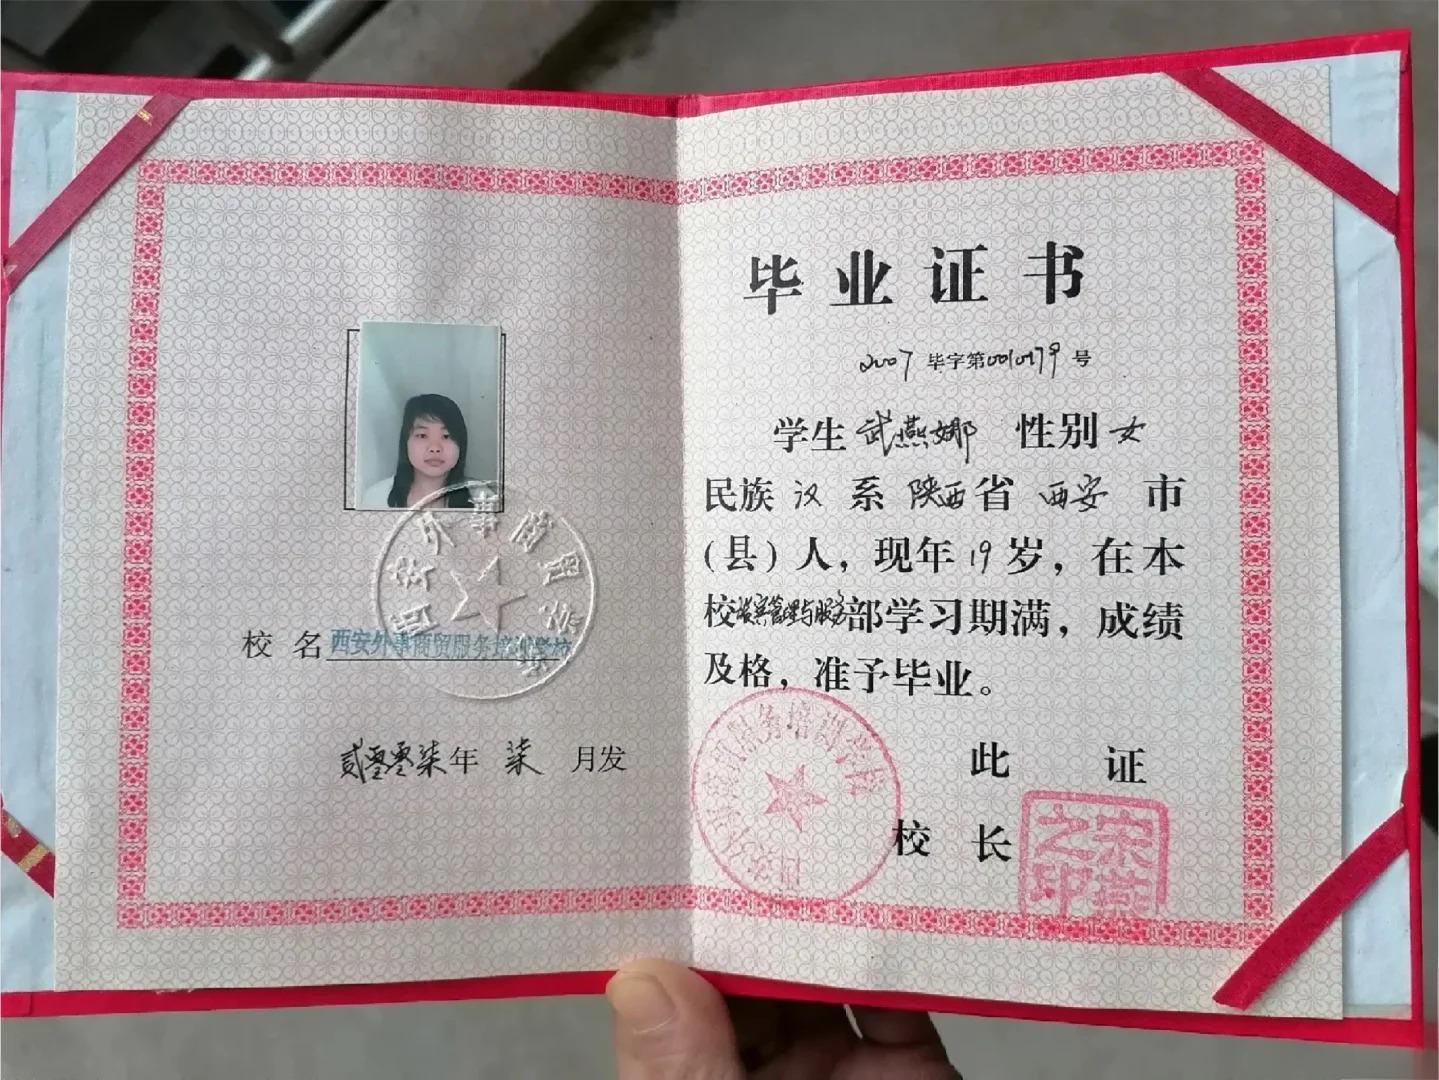 西安外事商贸服
校名西安外事商贸服务培训学校
贰零零柒年 柒 月发
毕业证书
2007 毕字第0010179号
学生 武燕娜 性别 女
民族 汉 系 陕西 省 西安 市
(县)人，现年 19 岁，在本
校宾管理与服务部学习期满，成绩
及格，准予毕业。
此 证
服务培训学校
校 长
宋燕之印